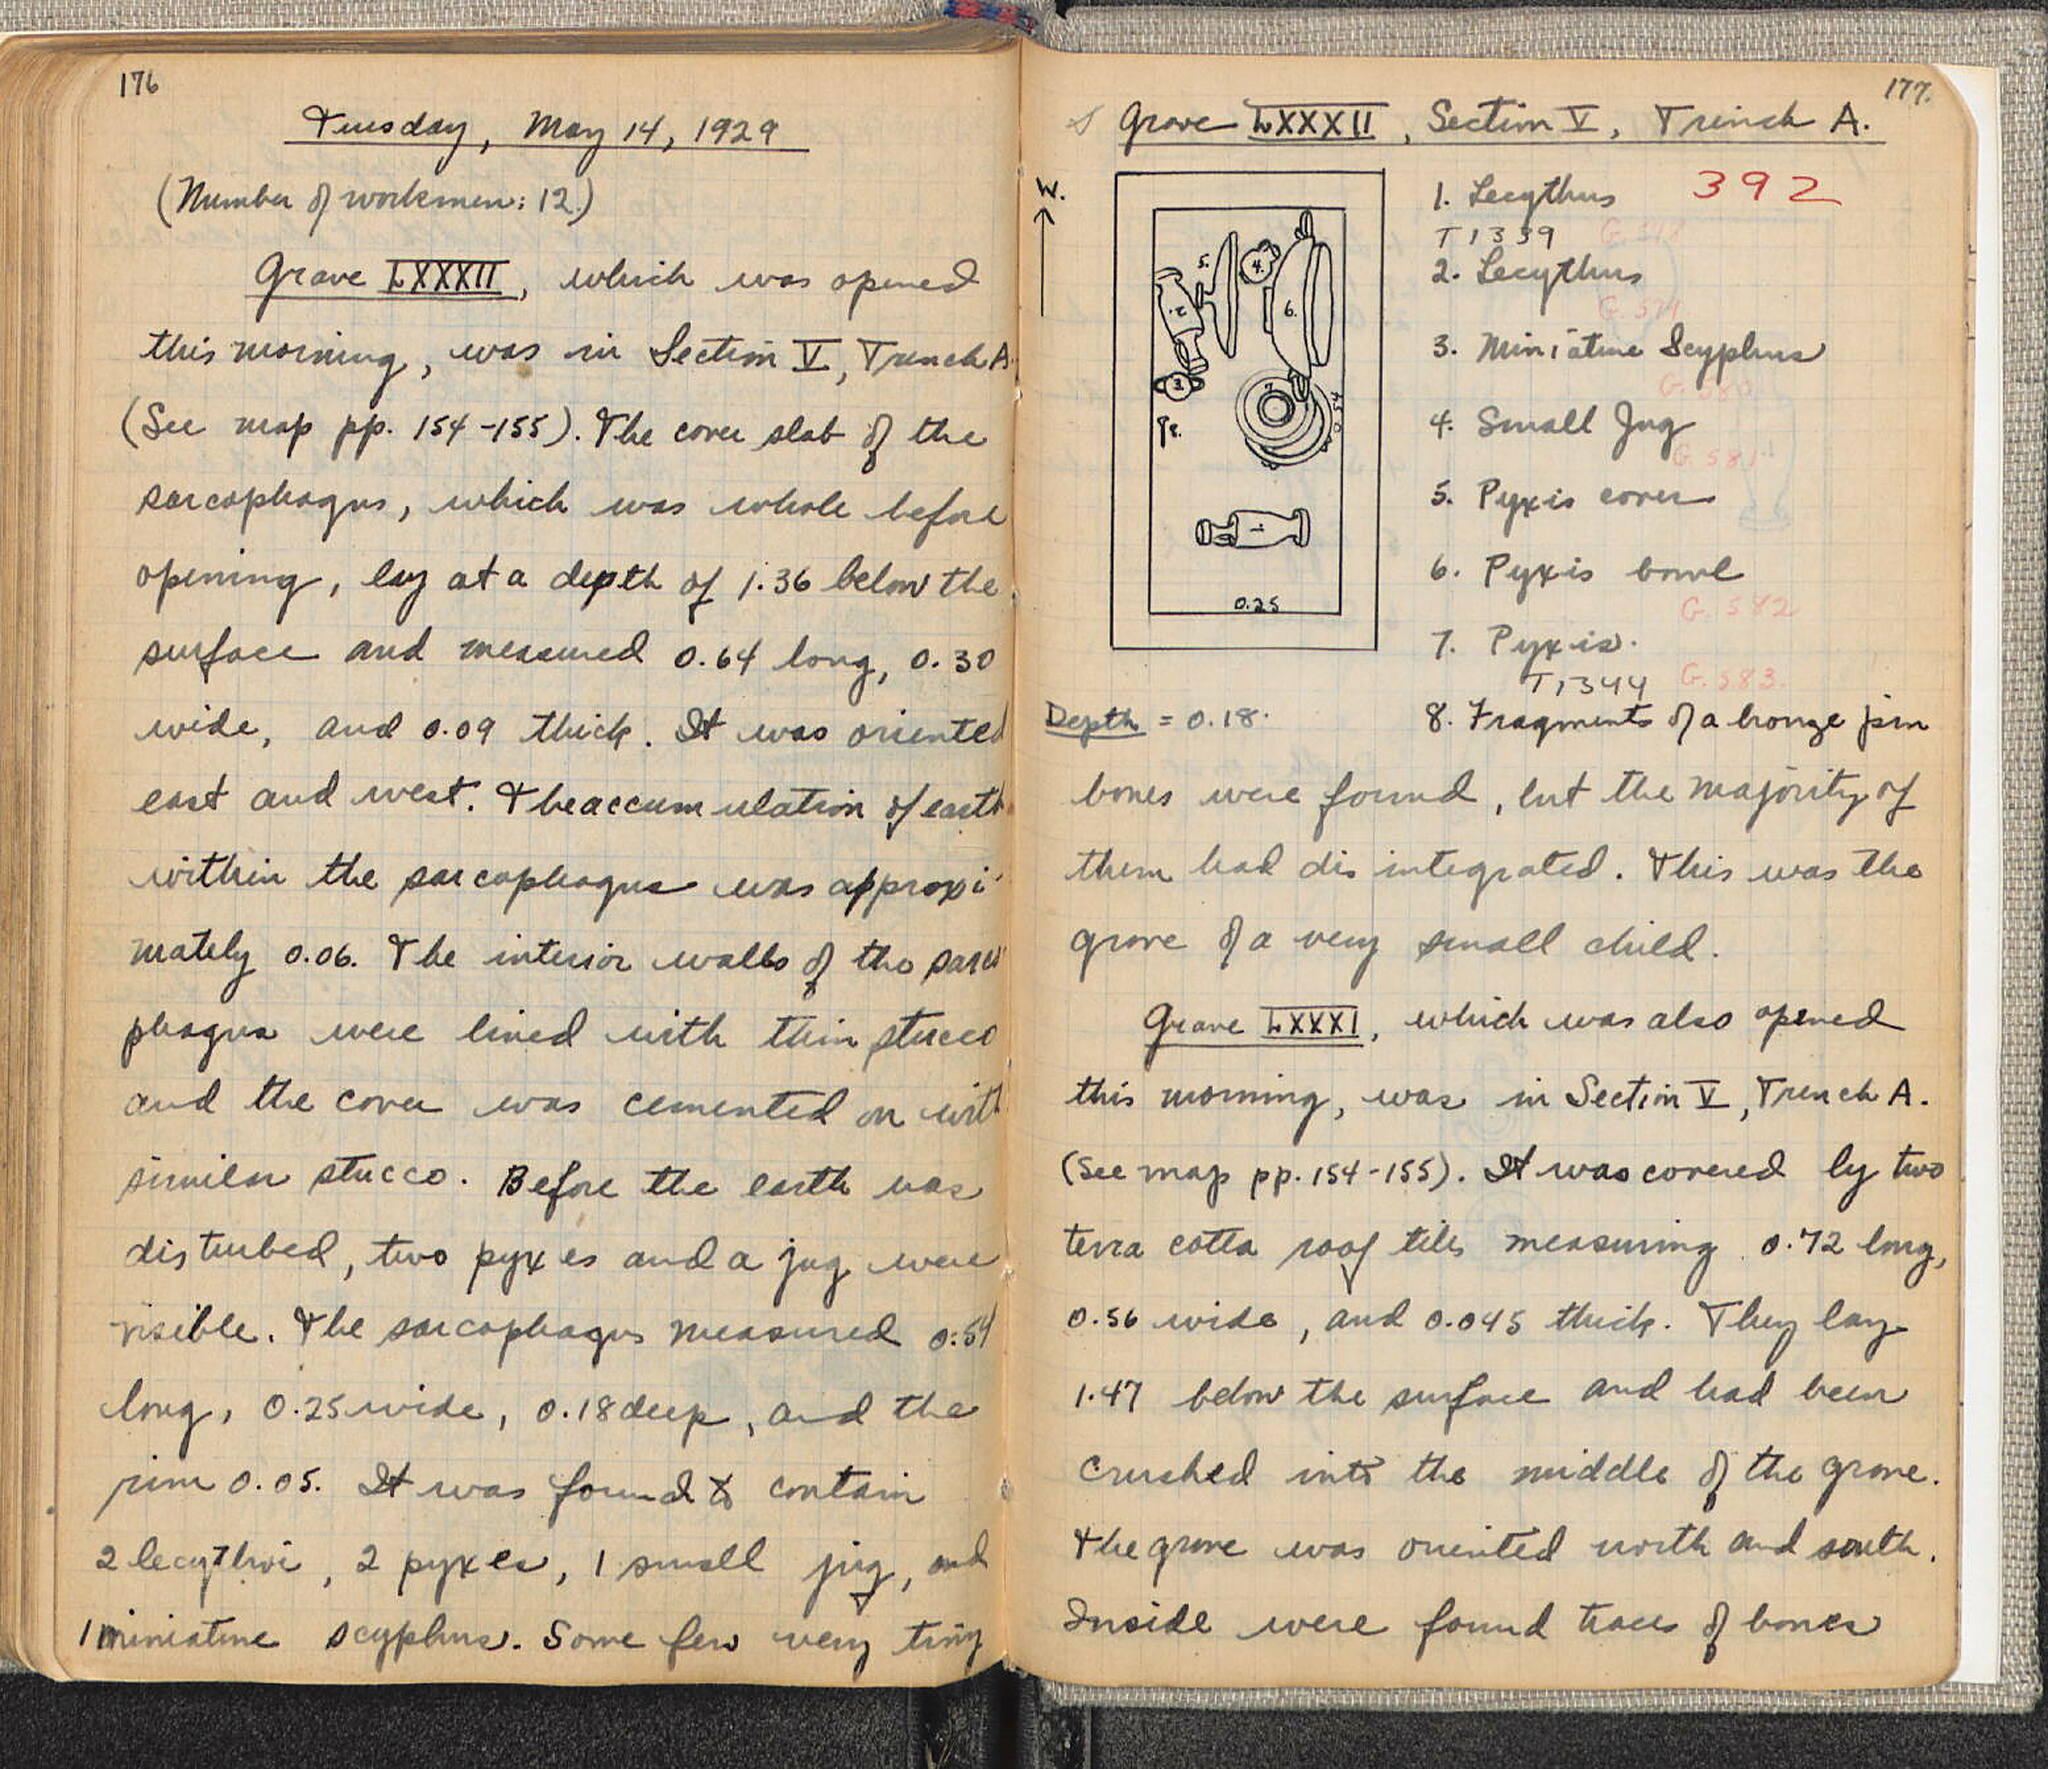 176
Tuesday, May 14, 1929
(Number of workmen: 12.)
Grave LXXXII, which was opened
this morning, was in Section V, Trench A.
(See map pp. 154-155). The cover slab of the
sarcophagus, which was whole before
opening, lay at a depth of 1.36 below the
surface and measured 0.64 long, 0.30
wide, and 0.09 thick. It was oriented
east and west. The accumulation of earth
within the sarcophagus was approxi-
mately 0.06. The interior walls of the sarco
phagus were lined with thin stucco
and the cover was cemented on with
similar stucco. Before the earth was
disturbed, two pyxes and a jug were
visible. The sarcophagus measured 0.54
long, 0.25 wide, 0.18 deep, and the
rim 0.05. It was found to contain
2 lecythoi, 2 pyxes, 1 small jug, and
1 miniature scyphus. Some few very tiny
177.
Grave LXXXII, Section V, Trench A.
W.
1. Lecythus 392
T1339
2. Lecythus
G. 579
3. Miniature Scyphus
G. 580
4. Small Jug
G. 581
5. Pyxis cover
6. Pyxis bowl
G. 582
7. Pyxis.
T1344 G. 583.
8. Fragments of a bronze pin
5.
4.
2.
6.
3.
7
0.54
8.
1
0.25
Depth = 0.18.
bones were found, but the majority of
them had disintegrated. This was the
grave of a very small child.
Grave LXXXI, which was also opened
this morning, was in Section V, Trench A.
(See map pp. 154-155). It was covered by two
terra cotta roof tiles measuring 0.72 long,
0.56 wide, and 0.045 thick. They lay
1.47 below the surface and had been
crushed into the middle of the grave.
The grave was oriented north and south.
Inside were found traces of bones